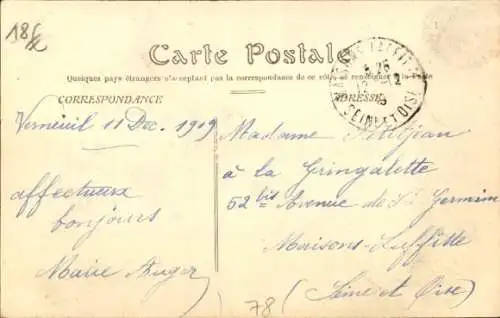 186
Carte Postale
Quelques pays étrangers n'acceptant pas la correspondance de ce côté, se renseigner à la Poste
CORRESPONDANCE
ADRESSE
MAISONS-LAFFITTE
SEINE-ET-OISE
Verneuil 11 Dec. 1919
affectueux
bonjours
Marie Auger
Madame Petitjean
à la Gringalette
52bis Avenue de St Germain
Maisons-Laffitte
(Seine et Oise)
78